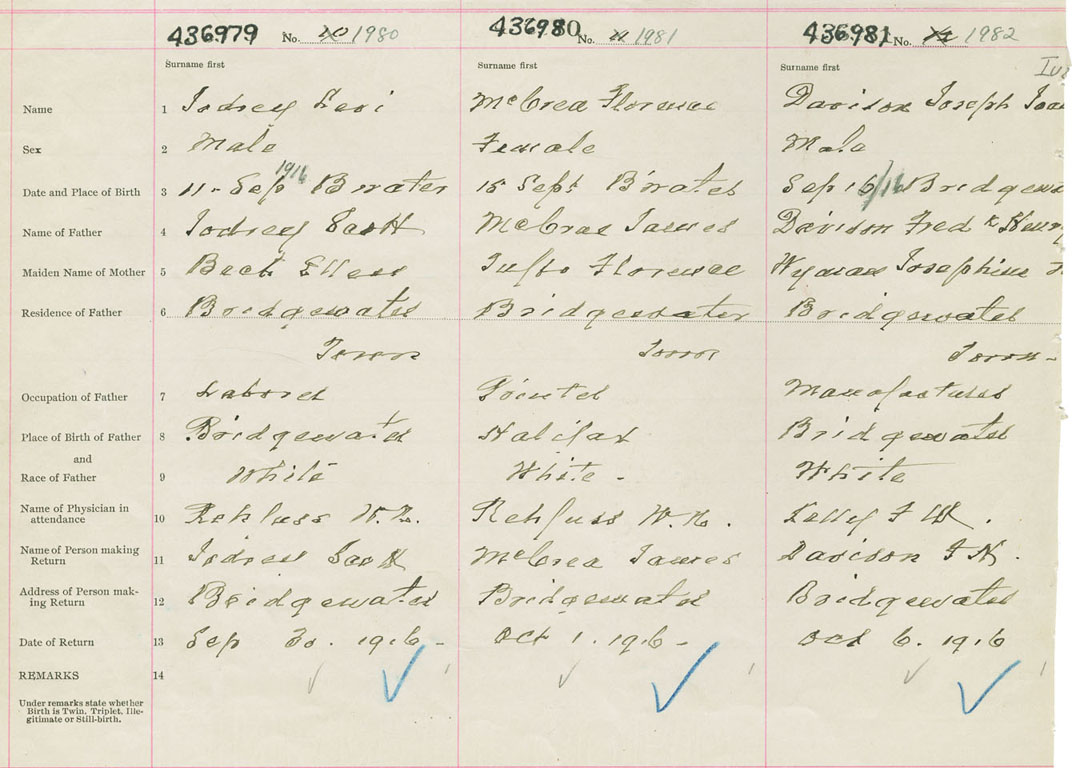 436979 No. 20 1980 436980 No. 21 1981 436981 No. 1982
Surname first Surname first Surname first
Name 1 Iodrey Levi McCrea Florence Davison Joseph
Sex 2 Male Female Male
Date and Place of Birth 3 11 - Sep 1916 B'water 15 Sept B'water Sep 16/16 Bridgewa
Name of Father 4 Iodrey Scott McCrae James Davison Fred k Henry
Maiden Name of Mother 5 Beck Ellen Tufts Florence Wyman Josephine
Residence of Father 6 Bridgewater Bridgewater Bridgewater
Town Town Town -
Occupation of Father 7 Laborer Printer Manufacturer
Place of Birth of Father 8 Bridgewater Halifax Bridgewater
and
Race of Father 9 White White - White
Name of Physician in
attendance 10 Rehfuss W. N. Rehfuss W. N. Kelley F W.
Name of Person making
Return 11 Iodrey Scott McCrea James Davison F H.
Address of Person mak-
ing Return 12 Bridgewater Bridgewater Bridgewater
Date of Return 13 Sep 30. 1916 - Oct 1. 1916 - Oct 6. 1916
REMARKS 14
Under remarks state whether
Birth is Twin, Triplet, Ille-
gitimate or Still-birth.